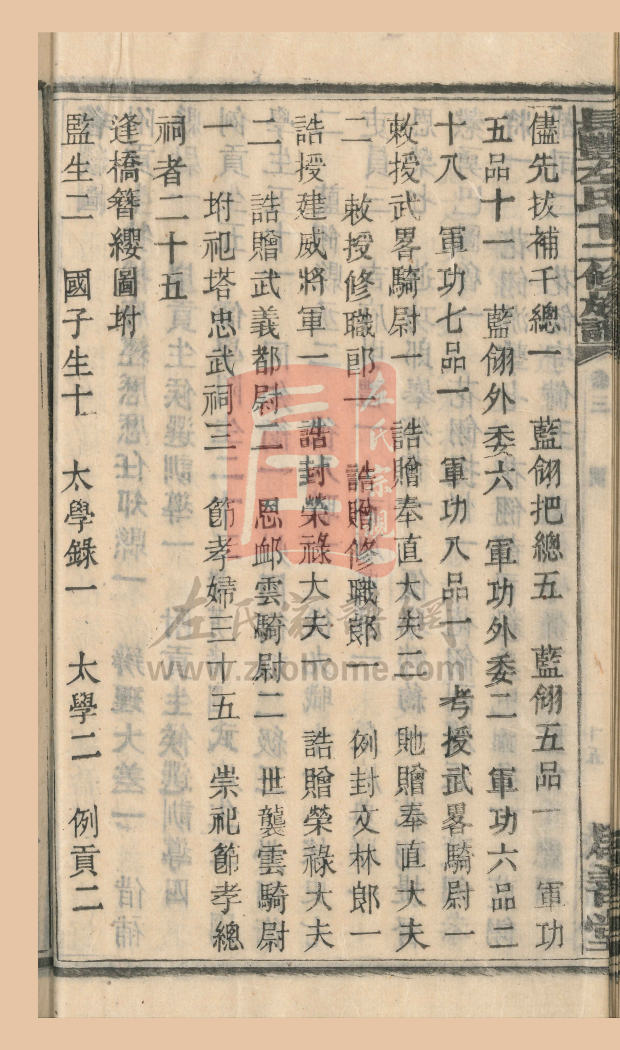 長豐左氏十二修族譜
卷三
儘先拔補千總一　藍翎把總五　藍翎五品一　軍功
五品十一　藍翎外委六　軍功外委二　軍功六品二
十八　軍功七品一　軍功八品一　考授武畧騎尉一
敕授武畧騎尉一　誥贈奉直大夫二　貤贈奉直大夫
二　敕授修職郎一　誥贈修職郎一　例封文林郎一
誥授建威將軍一　誥封榮祿大夫一　誥贈榮祿大夫
二　誥贈武義都尉二　恩卹雲騎尉二　世襲雲騎尉
一　坿祀塔忠武祠三　節孝婦三十五　崇祀節孝總
祠者二十五
逢橋簪纓圖坿
監生二　國子生十　太學錄一　太學二　例貢二
左氏宗親
左氏宗譜網
www.zuohome.com